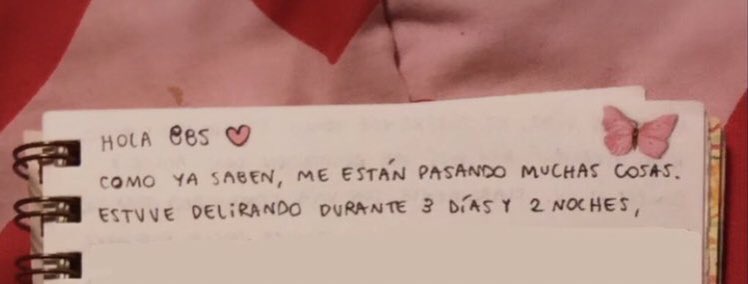 HOLA BBS
COMO YA SABEN, ME ESTÁN PASANDO MUCHAS COSAS.
ESTUVE DELIRANDO DURANTE 3 DÍAS Y 2 NOCHES,